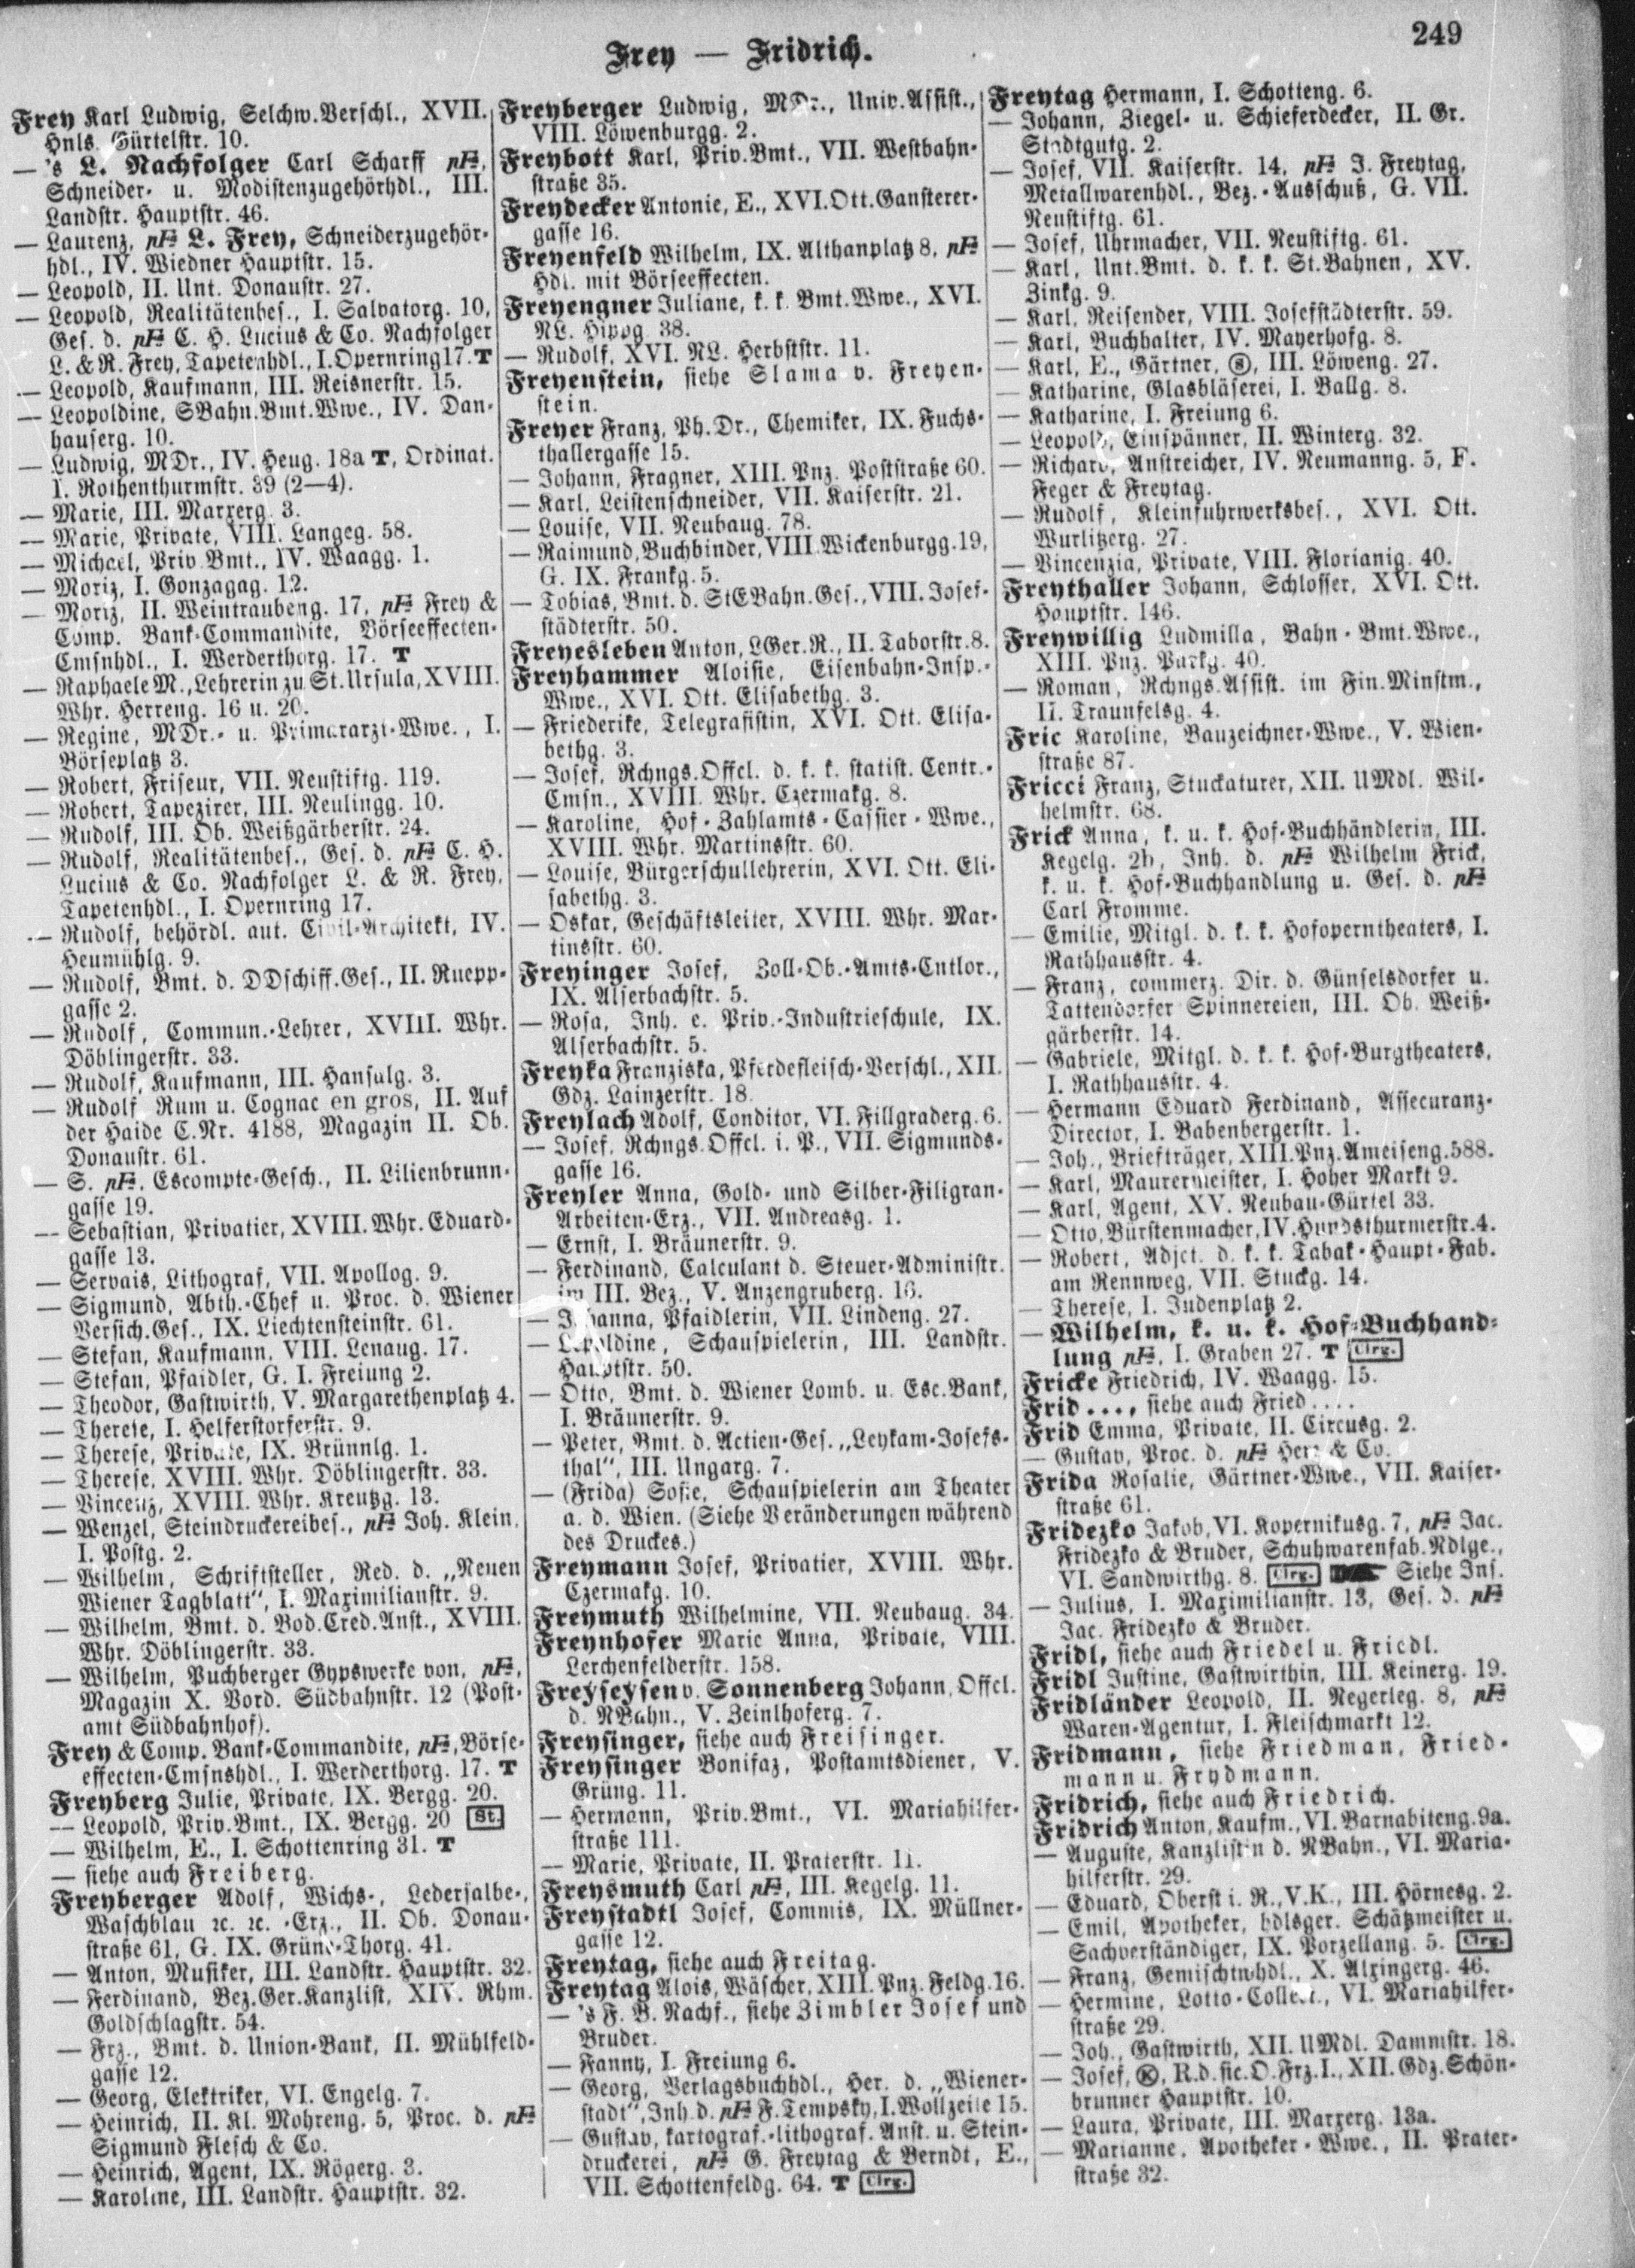 249
Frey — Fridrich.
Frey Karl Ludwig, Selchw.Verschl., XVII.
Hnls. Gürtelstr. 10.
— 's L. Nachfolger Carl Scharff pF,
Schneider- u. Modistenzugehörhdl., III.
Landstr. Hauptstr. 46.
— Laurenz, pF L. Frey, Schneiderzugehör-
hdl., IV. Wiedner Hauptstr. 15.
— Leopold, II. Unt. Donaustr. 27.
— Leopold, Realitätenbes., I. Salvatorg. 10,
Ges. d. pF C. H. Lucius & Co. Nachfolger
L. & R. Frey, Tapetenhdl., I. Opernring 17. T
— Leopold, Kaufmann, III. Reisnerstr. 15.
— Leopoldine, SBahn.Bmt.Wwe., IV. Dan-
hauserg. 10.
— Ludwig, MDr., IV. Heug. 18a T, Ordinat.
I. Rothenthurmstr. 39 (2—4).
— Marie, III. Marxerg. 3.
— Marie, Private, VIII. Langeg. 58.
— Michael, Priv.Bmt., IV. Waagg. 1.
— Moriz, I. Gonzagag. 12.
— Moriz, II. Weintraubeng. 17, pF Frey &
Comp. Bank-Commandite, Börseeffecten-
Cmsnhdl., I. Werderthorg. 17. T
— Raphaele M., Lehrerin zu St. Ursula, XVIII.
Whr. Herreng. 16 u. 20.
— Regine, MDr.- u. Primararzt-Wwe., I.
Börseplatz 3.
— Robert, Friseur, VII. Neustiftg. 119.
— Robert, Tapezirer, III. Neulingg. 10.
— Rudolf, III. Ob. Weißgärberstr. 24.
— Rudolf, Realitätenbes., Ges. d. pF C. H.
Lucius & Co. Nachfolger L. & R. Frey,
Tapetenhdl., I. Opernring 17.
— Rudolf, behördl. aut. Civil-Architekt, IV.
Heumühlg. 9.
— Rudolf, Bmt. d. DDschiff.Ges., II. Ruepp-
gasse 2.
— Rudolf, Commun.-Lehrer, XVIII. Whr.
Döblingerstr. 33.
— Rudolf, Kaufmann, III. Hansalg. 3.
— Rudolf Rum u. Cognac en gros, II. Auf
der Haide C.Nr. 4188, Magazin II. Ob.
Donaustr. 61.
— S. pF. Escompte-Gesch., II. Lilienbrunn-
gasse 19.
— Sebastian, Privatier, XVIII. Whr. Eduard-
gasse 13.
— Servais, Lithograf, VII. Apollog. 9.
— Sigmund, Abth.-Chef u. Proc. d. Wiener
Versich.Ges., IX. Liechtensteinstr. 61.
— Stefan, Kaufmann, VIII. Lenaug. 17.
— Stefan, Pfaidler, G. I. Freiung 2.
— Theodor, Gastwirth, V. Margarethenplatz 4.
— Therese, I. Helferstorferstr. 9.
— Therese, Private, IX. Brünnlg. 1.
— Therese, XVIII. Whr. Döblingerstr. 33.
— Vincenz, XVIII. Whr. Kreutzg. 13.
— Wenzel, Steindruckereibes., pF Joh. Klein,
I. Postg. 2.
— Wilhelm, Schriftsteller, Red. d. „Neuen
Wiener Tagblatt“, I. Maximilianstr. 9.
— Wilhelm, Bmt. d. Bod.Cred.Anst., XVIII.
Whr. Döblingerstr. 33.
— Wilhelm, Puchberger Gypswerke von, pF,
Magazin X. Vord. Südbahnstr. 12 (Post-
amt Südbahnhof).
Frey & Comp. Bank-Commandite, pF, Börse-
effecten-Cmsnshdl., I. Werderthorg. 17. T
Freyberg Julie, Private, IX. Bergg. 20.
— Leopold, Priv.Bmt., IX. Bergg. 20 St.
— Wilhelm, E., I. Schottenring 31. T
— siehe auch Freiberg.
Freyberger Adolf, Wichs-, Ledersalbe-,
Waschblau ꝛc. ꝛc. -Erz., II. Ob. Donau-
straße 61, G. IX. Gründ-Thorg. 41.
— Anton, Musiker, III. Landstr. Hauptstr. 32.
— Ferdinand, Bez.Ger.Kanzlist, XIV. Rhm.
Goldschlagstr. 54.
— Frz., Bmt. d. Union-Bank, II. Mühlfeld-
gasse 12.
— Georg, Elektriker, VI. Engelg. 7.
— Heinrich, II. Kl. Mohreng. 5, Proc. d. pF
Sigmund Flesch & Co.
— Heinrich, Agent, IX. Rögerg. 3.
— Karoline, III. Landstr. Hauptstr. 32.
Freyberger Ludwig, MDr., Univ.Assist.,
VIII. Löwenburgg. 2.
Freybott Karl, Priv.Bmt., VII. Westbahn-
straße 35.
Freydecker Antonie, E., XVI. Ott. Gansterer-
gasse 16.
Freyenfeld Wilhelm, IX. Althanplatz 8, pF
Hdl. mit Börseeffecten.
Freyengner Juliane, k. k. Bmt.Wwe., XVI.
NL. Hipvg. 38.
— Rudolf, XVI. NL. Herbststr. 11.
Freyenstein, siehe Slama v. Freyen-
stein.
Freyer Franz, Ph.Dr., Chemiker, IX. Fuchs-
thallergasse 15.
— Johann, Fragner, XIII. Pnz. Poststraße 60.
— Karl, Leistenschneider, VII. Kaiserstr. 21.
— Louise, VII. Neubaug. 78.
— Raimund, Buchbinder, VIII. Wickenburgg. 19,
G. IX. Frankg. 5.
— Tobias, Bmt. d. StEBahn.Ges., VIII. Josef-
städterstr. 50.
Freyesleben Anton, LGer.R., II. Taborstr. 8.
Freyhammer Aloisie, Eisenbahn-Insp.-
Wwe., XVI. Ott. Elisabethg. 3.
— Friederike, Telegrafistin, XVI. Ott. Elisa-
bethg. 3.
— Josef, Rchngs.Offcl. d. k. k. statist. Centr.-
Cmsn., XVIII. Whr. Czermakg. 8.
— Karoline, Hof-Zahlamts-Cassier-Wwe.,
XVIII. Whr. Martinsstr. 60.
— Louise, Bürgerschullehrerin, XVI. Ott. Eli-
sabethg. 3.
— Oskar, Geschäftsleiter, XVIII. Whr. Mar-
tinsstr. 60.
Freyinger Josef, Zoll-Ob.-Amts-Cntlor.,
IX. Alserbachstr. 5.
— Rosa, Inh. e. Priv.-Industrieschule, IX.
Alserbachstr. 5.
Freyka Franziska, Pferdefleisch-Verschl., XII.
Gdz. Lainzerstr. 18.
Freylach Adolf, Conditor, VI. Fillgraderg. 6.
— Josef, Rchngs.Offcl. i. P., VII. Sigmunds-
gasse 16.
Freyler Anna, Gold- und Silber-Filigran-
Arbeiten-Erz., VII. Andreasg. 1.
— Ernst, I. Bräunerstr. 9.
— Ferdinand, Calculant d. Steuer-Administr.
im III. Bez., V. Anzengruberg. 16.
— Johanna, Pfaidlerin, VII. Lindeng. 27.
— Leopoldine, Schauspielerin, III. Landstr.
Hauptstr. 50.
— Otto, Bmt. d. Wiener Lomb. u. Esc.Bank,
I. Bräunerstr. 9.
— Peter, Bmt. d. Actien-Ges. „Leykam-Josefs-
thal“, III. Ungarg. 7.
— (Frida) Sofie, Schauspielerin am Theater
a. d. Wien. (Siehe Veränderungen während
des Druckes.)
Freymann Josef, Privatier, XVIII. Whr.
Czermakg. 10.
Freymuth Wilhelmine, VII. Neubaug. 34.
Freynhofer Marie Anna, Private, VIII.
Lerchenfelderstr. 158.
Freyseysen v. Sonnenberg Johann, Offcl.
d. NBahn., V. Zeinlhoferg. 7.
Freysinger, siehe auch Freisinger.
Freysinger Bonifaz, Postamtsdiener, V.
Grüng. 11.
— Hermann, Priv.Bmt., VI. Mariahilfer-
straße 111.
— Marie, Private, II. Praterstr. 11.
Freysmuth Carl pF, III. Kegelg. 11.
Freystadtl Josef, Commis, IX. Müllner-
gasse 12.
Freytag, siehe auch Freitag.
Freytag Alois, Wäscher, XIII. Pnz. Feldg. 16.
— 's F. B. Nachf., siehe Zimbler Josef und
Bruder.
— Fanny, I. Freiung 6.
— Georg, Verlagsbuchhdl., Her. d. „Wiener-
stadt“, Inh. d. pF F. Tempsky, I. Wollzeile 15.
— Gustav, kartograf.-lithograf. Anst. u. Stein-
druckerei, pF G. Freytag & Berndt, E.,
VII. Schottenfeldg. 64. T Clrg.
Freytag Hermann, I. Schotteng. 6.
— Johann, Ziegel- u. Schieferdecker, II. Gr.
Stadtgutg. 2.
— Josef, VII. Kaiserstr. 14, pF J. Freytag,
Metallwarenhdl., Bez.-Ausschuß, G. VII.
Neustiftg. 61.
— Josef, Uhrmacher, VII. Neustiftg. 61.
— Karl, Unt.Bmt. d. k. k. St.Bahnen, XV.
Zinkg. 9.
— Karl, Reisender, VIII. Josefstädterstr. 59.
— Karl, Buchhalter, IV. Mayerhofg. 8.
— Karl, E., Gärtner, (8), III. Löweng. 27.
— Katharine, Glasbläserei, I. Ballg. 8.
— Katharine, I. Freiung 6.
— Leopold, Einspänner, II. Winterg. 32.
— Richard, Anstreicher, IV. Neumanng. 5, F.
Feger & Freytag.
— Rudolf, Kleinfuhrwerksbes., XVI. Ott.
Wurlitzerg. 27.
— Vincenzia, Private, VIII. Florianig. 40.
Freythaller Johann, Schlosser, XVI. Ott.
Hauptstr. 146.
Freywillig Ludmilla, Bahn-Bmt.Wwe.,
XIII. Pnz. Parkg. 40.
— Roman, Rchngs.Assist. im Fin.Minstm.,
II. Traunfelsg. 4.
Fric Karoline, Bauzeichner-Wwe., V. Wien-
straße 87.
Fricci Franz, Stuckaturer, XII. UMdl. Wil-
helmstr. 68.
Frick Anna, k. u. k. Hof-Buchhändlerin, III.
Kegelg. 2b, Inh. d. pF Wilhelm Frick,
k. u. k. Hof-Buchhandlung u. Ges. d. pF
Carl Fromme.
— Emilie, Mitgl. d. k. k. Hofoperntheaters, I.
Rathhausstr. 4.
— Franz, commerz. Dir. d. Günselsdorfer u.
Tattendorfer Spinnereien, III. Ob. Weiß-
gärberstr. 14.
— Gabriele, Mitgl. d. k. k. Hof-Burgtheaters,
I. Rathhausstr. 4.
— Hermann Eduard Ferdinand, Assecuranz-
Director, I. Babenbergerstr. 1.
— Joh., Briefträger, XIII. Pnz. Ameiseng. 588.
— Karl, Maurermeister, I. Hoher Markt 9.
— Karl, Agent, XV. Neubau-Gürtel 33.
— Otto, Bürstenmacher, IV. Hundsthurmerstr. 4.
— Robert, Adjct. d. k. k. Tabak-Haupt-Fab.
am Rennweg, VII. Stuckg. 14.
— Therese, I. Judenplatz 2.
— Wilhelm, k. u. k. Hof-Buchhand-
lung pF, I. Graben 27. T Clrg.
Fricke Friedrich, IV. Waagg. 15.
Frid..., siehe auch Fried....
Frid Emma, Private, II. Circusg. 2.
— Gustav, Proc. d. pF Herz & Co.
Frida Rosalie, Gärtner-Wwe., VII. Kaiser-
straße 61.
Fridezko Jakob, VI. Kopernikusg. 7, pF Jac.
Fridezko & Bruder, Schuhwarenfab.Ndlge.,
VI. Sandwirthg. 8. Clrg. Siehe Ins.
— Julius, I. Maximilianstr. 13, Ges. d. pF
Jac. Fridezko & Bruder.
Fridl, siehe auch Friedel u. Friedl.
Fridl Justine, Gastwirthin, III. Keinerg. 19.
Fridländer Leopold, II. Negerleg. 8, pF
Waren-Agentur, I. Fleischmarkt 12.
Fridmann, siehe Friedman, Fried-
mann u. Frydmann.
Fridrich, siehe auch Friedrich.
Fridrich Anton, Kaufm., VI. Barnabiteng. 9a.
— Auguste, Kanzlistin d. NBahn., VI. Maria-
hilferstr. 29.
— Eduard, Oberst i. R., V.K., III. Hörnesg. 2.
— Emil, Apotheker, hdlsger. Schätzmeister u.
Sachverständiger, IX. Porzellang. 5. Clrg.
— Franz, Gemischtwhdl., X. Alxingerg. 46.
— Hermine, Lotto-Collect., VI. Mariahilfer-
straße 29.
— Joh., Gastwirth, XII. UMdl. Dammstr. 18.
— Josef, (K), R.d.sic.O.Frz.I., XII. Gdz. Schön-
brunner Hauptstr. 10.
— Laura, Private, III. Marxerg. 13a.
— Marianne, Apotheker-Wwe., II. Prater-
straße 32.